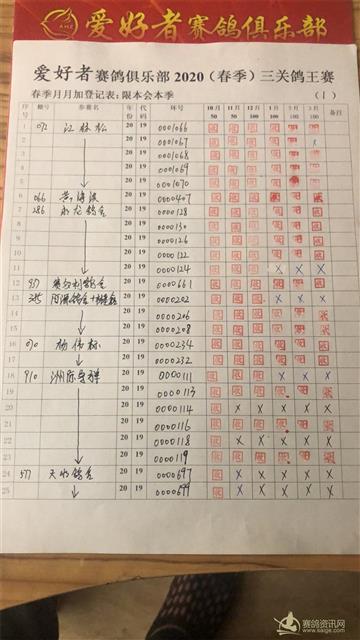 爱好者赛鸽俱乐部
爱好者赛鸽俱乐部2020(春季)三关鸽王赛
春季月月加登记表:限本会本季 (1)
序号 棚号 参赛名 年份 代码 环号 10月50 11月50 12月100 1月100 2月100 3月100 备注
1 072 江林松 20 19 0001066
2 20 19 0001067 X
3 20 19 0001068
4 20 19 0001069
5 20 19 0001070
6 066 20 19 0000407
7 286 永龙鸽舍 20 19 0000128
8 20 19 0000130
9 20 19 0000126
10 20 19 0000122
11 20 19 0000124 X X X
12 937 20 19 0000661
13 385 20 19 0000202 X X X
14 20 19 0000206
15 20 19 0000208
16 070 杨伟标 20 19 0000234
17 20 19 0000232
18 910 20 19 0000111 X X X
19 20 19 0000113
20 20 19 0000114 X X X X X
21 20 19 0000116
22 20 19 0000118 X X X X X
23 20 19 0000119
24 577 天水鸽舍 20 19 0000697 X X X X X
25 20 19 0000699 X X X X X
赛鸽资讯网
www.saige.com